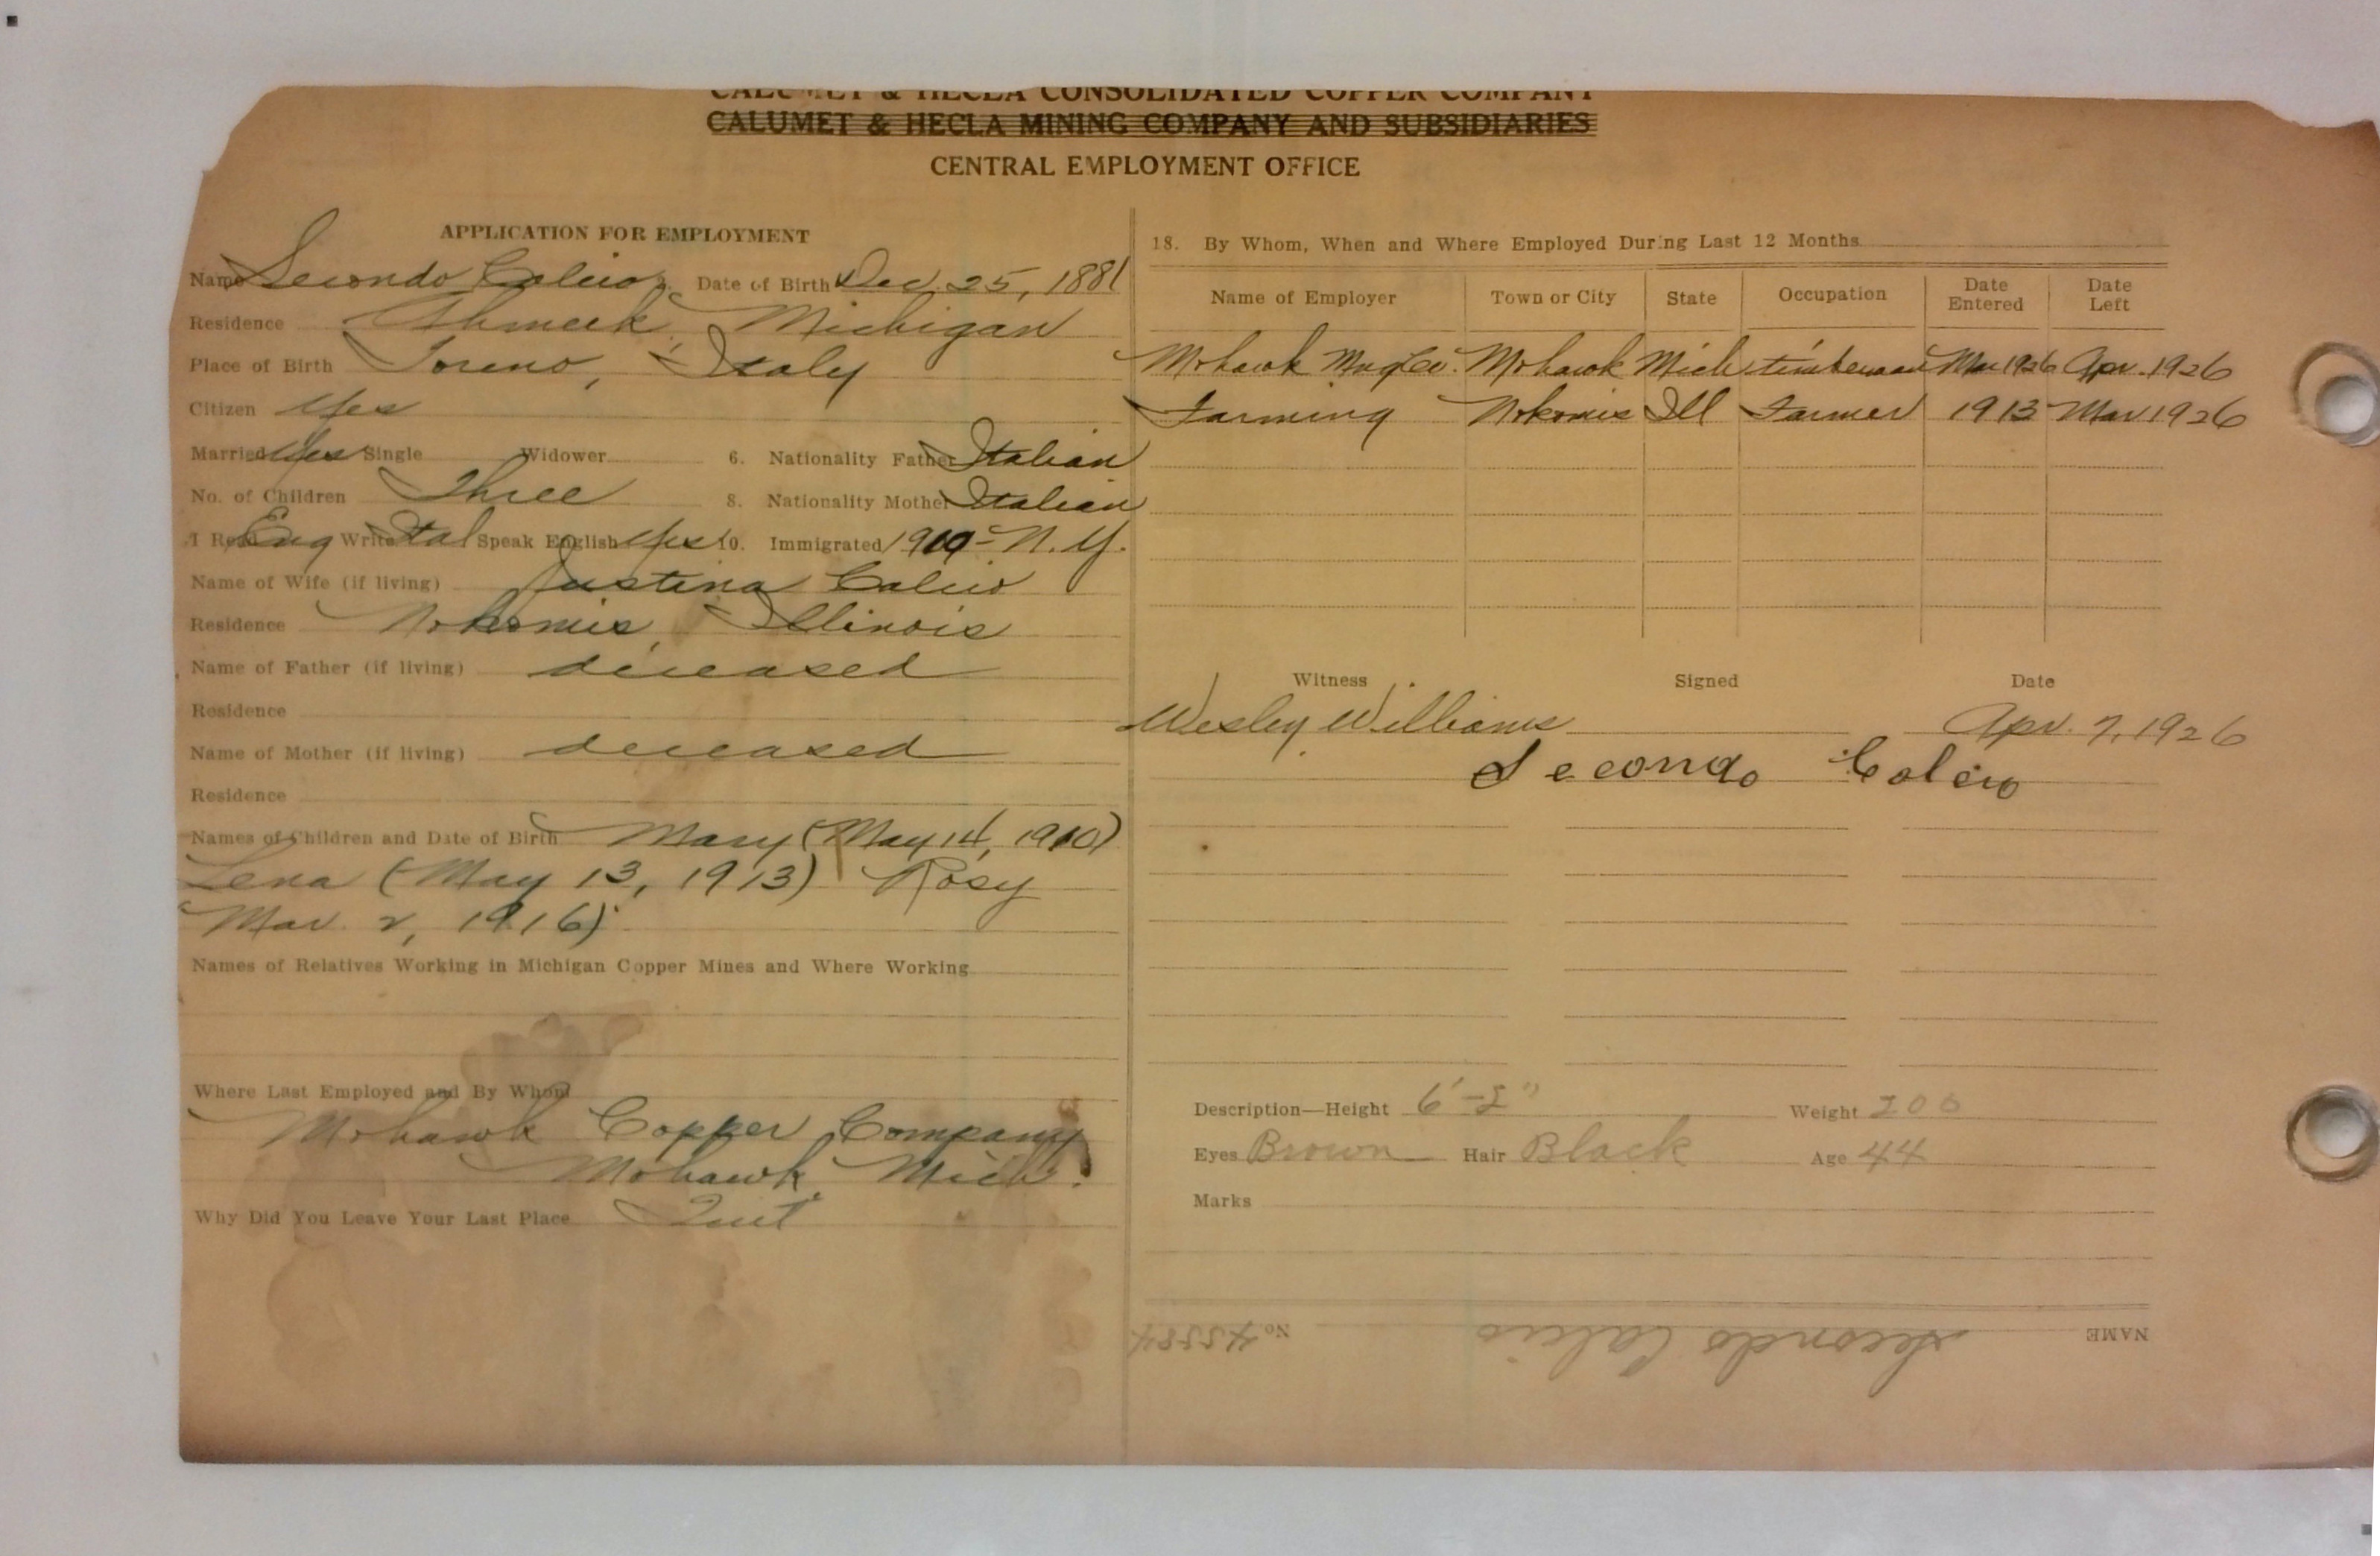 CALUMET & HECLA CONSOLIDATED COPPER COMPANY
CALUMET & HECLA MINING COMPANY AND SUBSIDIARIES
CENTRAL EMPLOYMENT OFFICE
APPLICATION FOR EMPLOYMENT
Name Secondo Calcio Date of Birth Dec. 25, 1881
Residence Ahmeek, Michigan
Place of Birth Toreno, Italy
Citizen Yes
Married Yes Single Widower 6. Nationality Father Italian
No. of Children Three 8. Nationality Mother Italian
I Read Eng Write Ital Speak English Yes 10. Immigrated N.Y.
Name of Wife (if living) Justina Calcio
Residence Nokomis, Illinois
Name of Father (if living) deceased
Residence
Name of Mother (if living) deceased
Residence
Names of Children and Date of Birth Mary (May 14, 1910)
Lena (May 13, 1913) Rosy
Mar. 2, 1916)
Names of Relatives Working in Michigan Copper Mines and Where Working
Where Last Employed and By Whom
Mohawk Copper Company
Mohawk Mich.
Why Did You Leave Your Last Place Quit
18. By Whom, When and Where Employed During Last 12 Months
Name of Employer Town or City State Occupation Date Entered Date Left
Mohawk Mng Co. Mohawk Mich timberman Mar 1926 Apr. 1926
Farming Nokomis Ill Farmer 1913 Mar 1926
Witness Signed Date
Wesley Williams Apr. 7, 1926
Secondo Calcio
Description—Height 6'-2" Weight 200
Eyes Brown Hair Black Age 44
Marks
NAME Secondo Calcio No. 45584